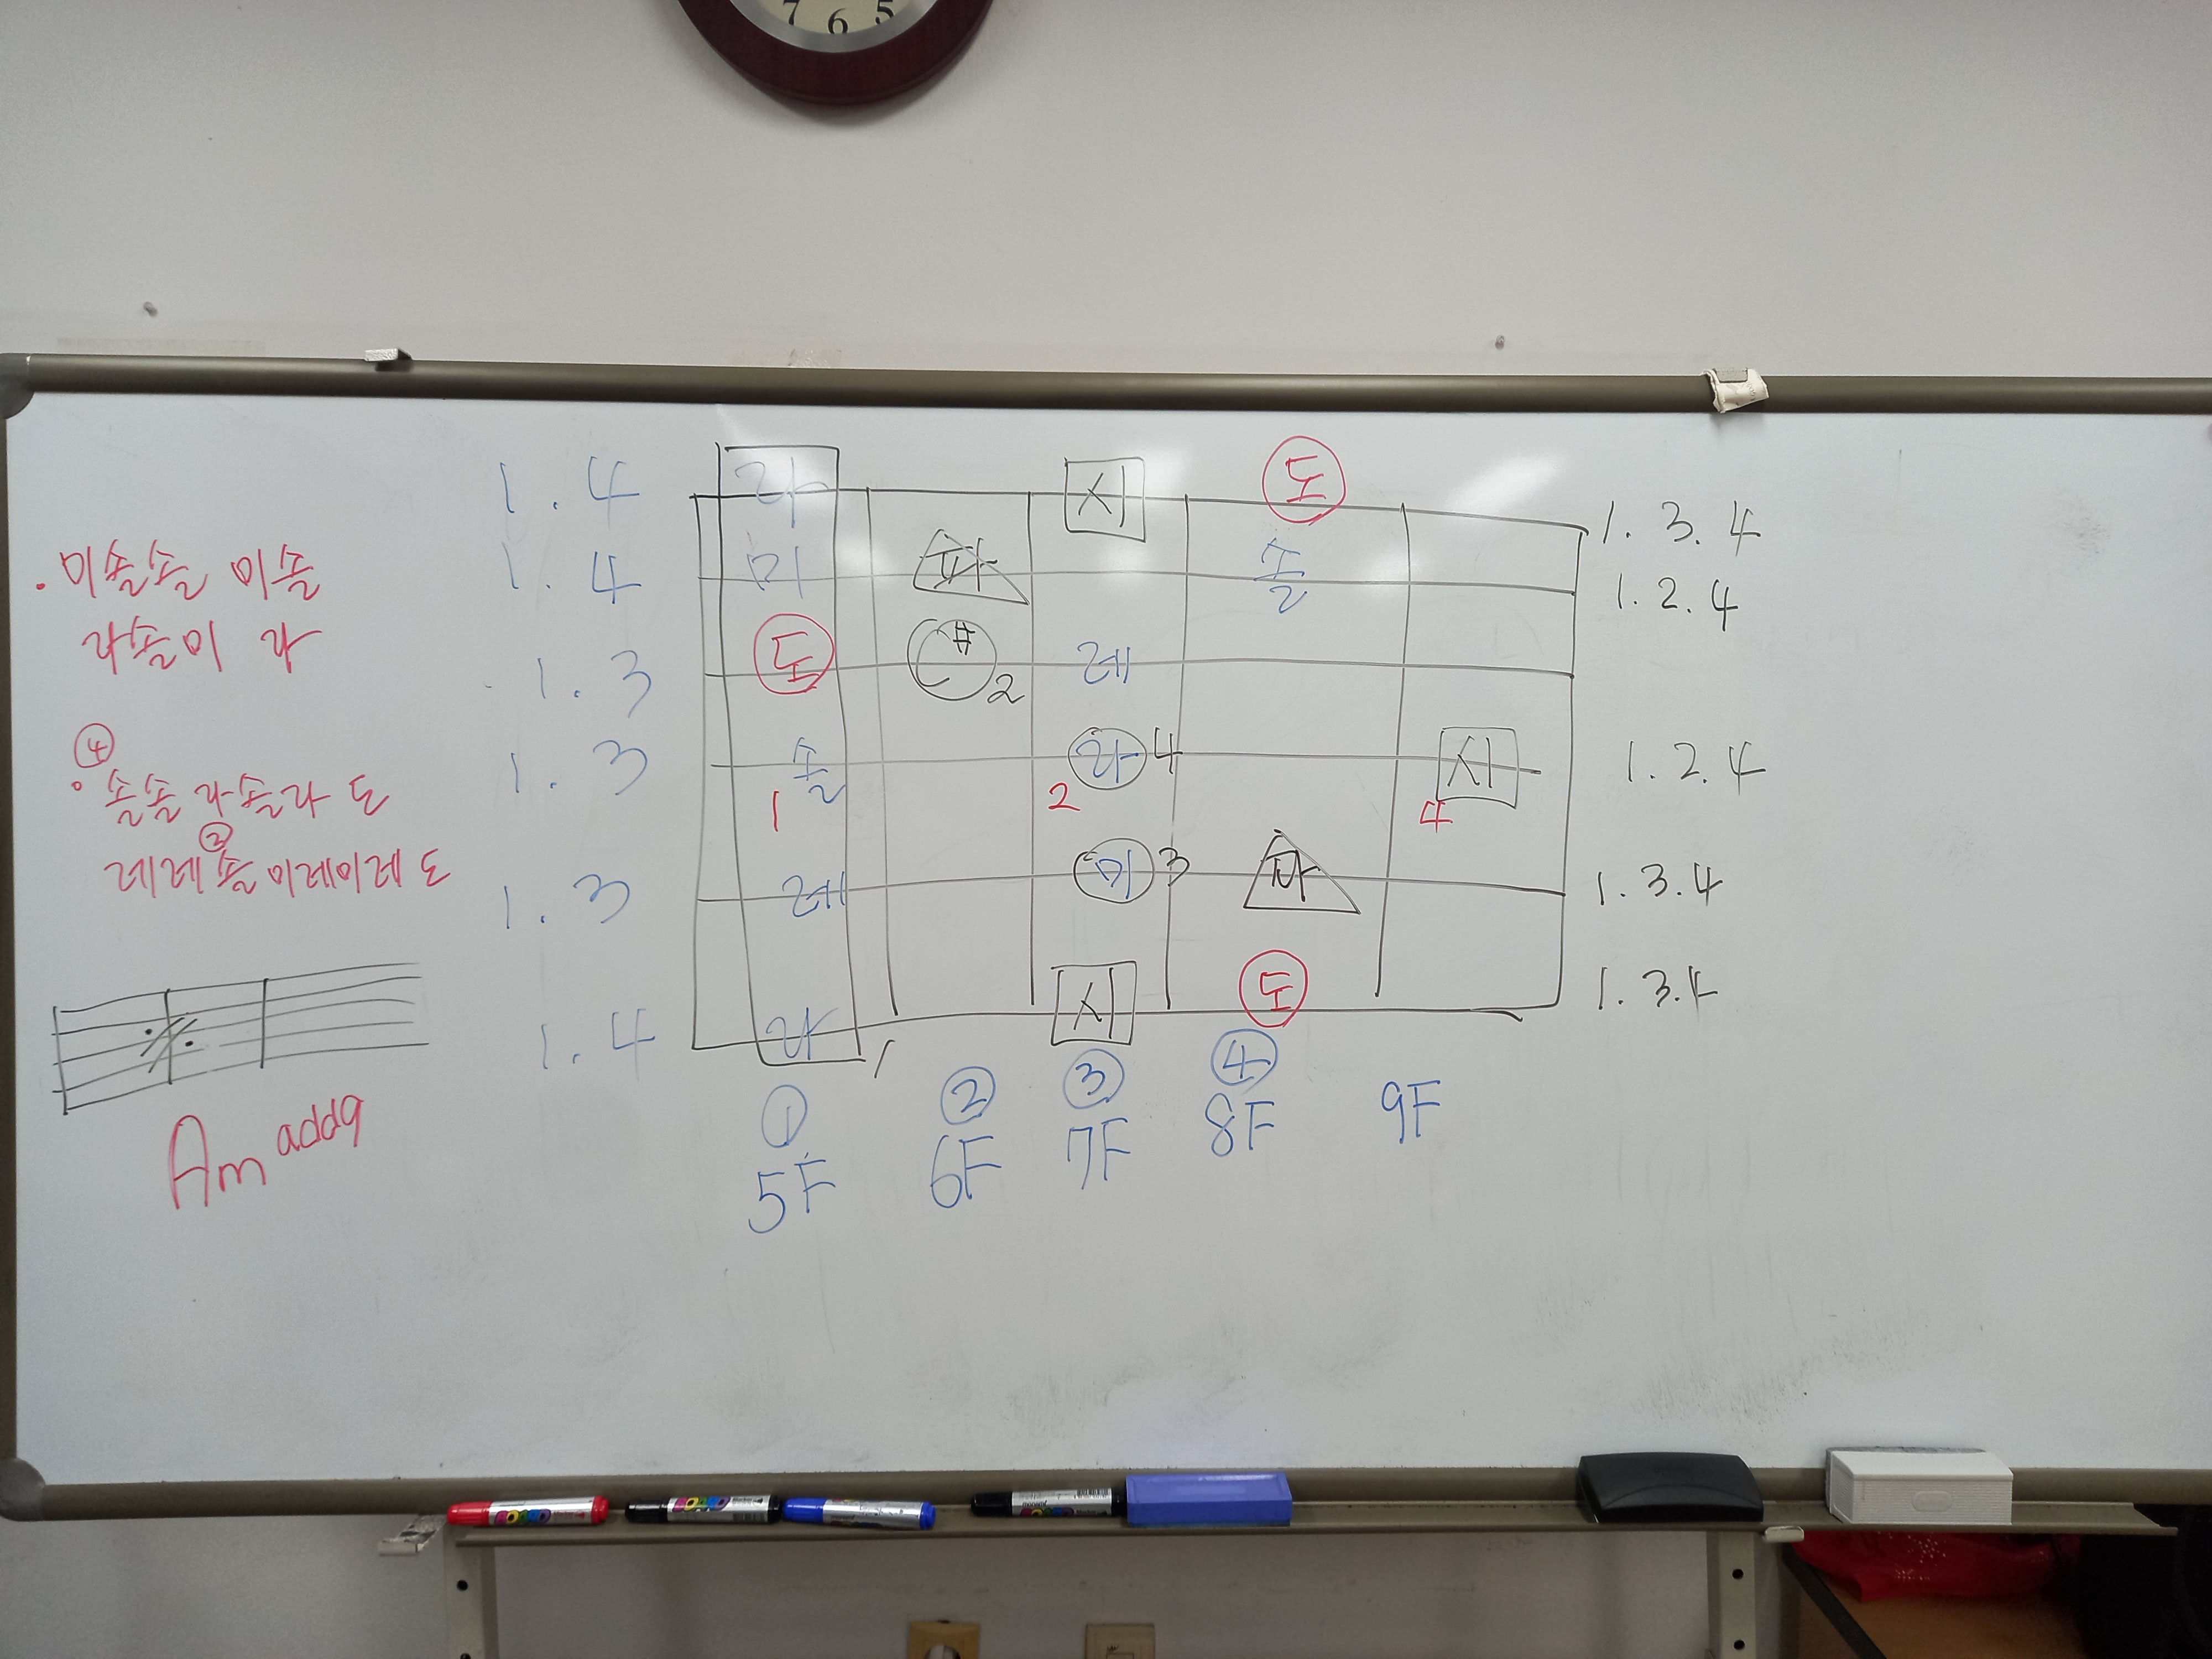 7 6 5
1 . 4 라 시 도 1. 3. 4
1 . 4 미 파 솔 1. 2. 4
1 . 3 도 # 2 레
1 . 3 솔 라 4 시 1. 2. 4
1 2 4
1 . 3 레 미 3 파 1. 3. 4
1 . 4 라 시 도 1. 3. 4
① ② ③ ④
5F 6F 7F 8F 9F
· 미솔솔 미솔
라솔미 라
④
· 솔솔 라솔라 도
②
레레솔미레미레 도
Am add9